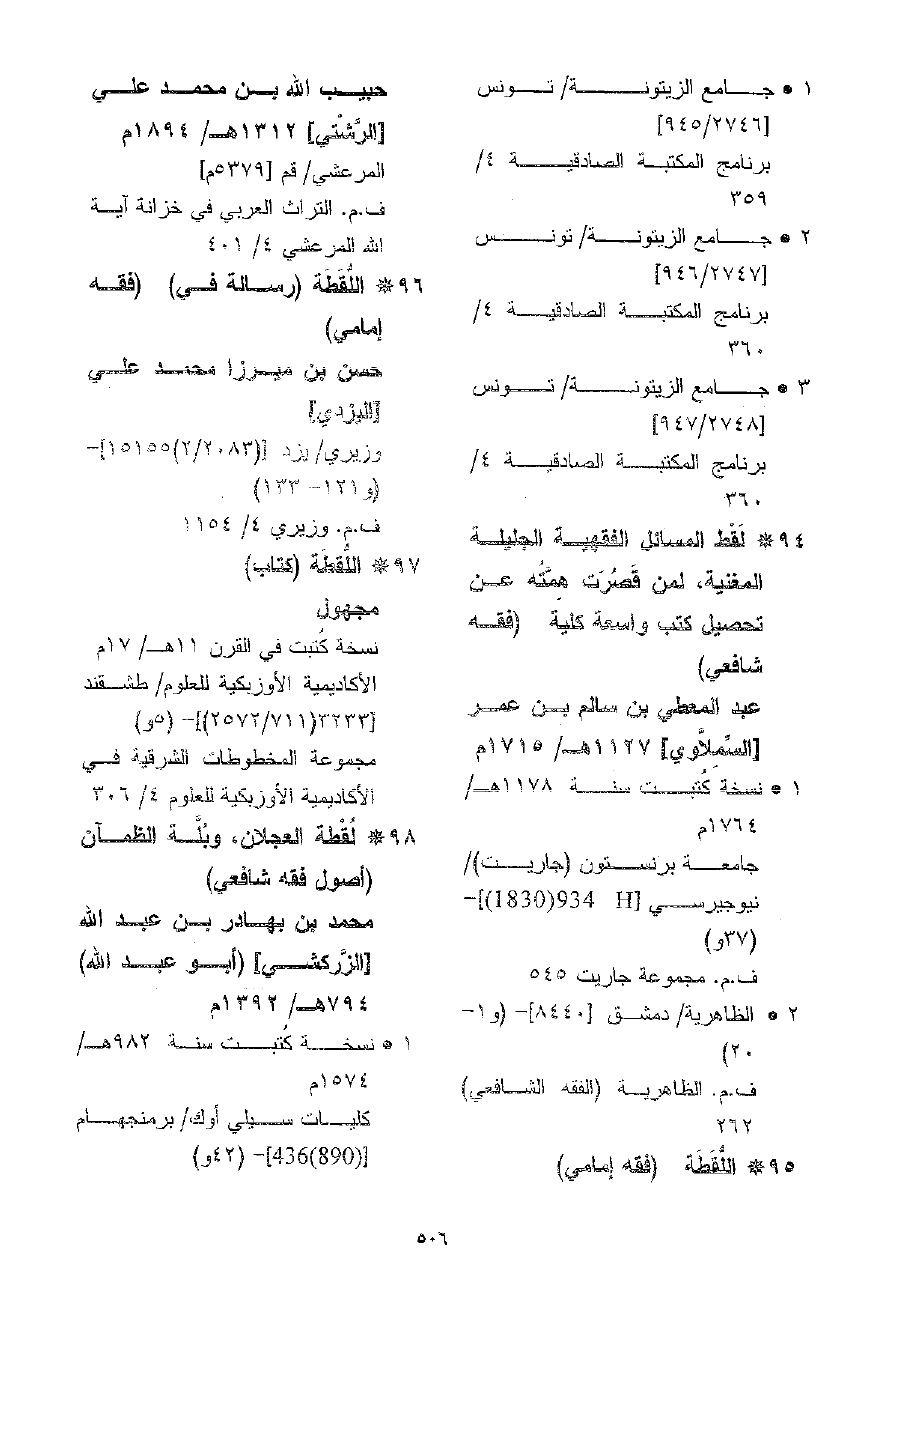 ١ • جامع الزيتونة/ تونس
[٩٤٥/٢٧٤٦]
برنامج المكتبة الصادقية ٤/
٣٥٩
٢ • جامع الزيتونة/ تونس
[٩٤٦/٢٧٤٧]
برنامج المكتبة الصادقية ٤/
٣٦٠
٣ • جامع الزيتونة/ تونس
[٩٤٧/٢٧٤٨]
برنامج المكتبة الصادقية ٤/
٣٦٠
٩٤* لَقْط المسائل الفقهية الجليلة
المغنية، لمن قَصُرَت همتُه عن
تحصيل كتب واسعة كلية (فقه
شافعي)
عبد المعطي بن سالم بن عمر
[السِّملَّاوي] ١١٢٧هـ/ ١٧١٥م
١ • نسخة كُتبت سنة ١١٧٨هـ/
١٧٦٤م
جامعة برنستون (جاريت)/
نيوجيرسي [H 934(1830)]-
(٣٧و)
ف.م. مجموعة جاريت ٥٤٥
٢ • الظاهرية/ دمشق [٨٤٤٠]- (و١-
٢٠)
ف.م. الظاهرية (الفقه الشافعي)
٢٦٢
٩٥* اللُّقَطَة (فقه إمامي)
حبيب الله بن محمد علي
[الرَّشْتي] ١٣١٢هـ/ ١٨٩٤م
المرعشي/ قم [٥٣٧٩م]
ف.م. التراث العربي في خزانة آية
الله المرعشي ٤/ ٤٠١
٩٦* اللُّقَطَة (رسالة في) (فقه
إمامي)
حسن بن ميرزا محمد علي
[اليزدي]
وزيري/ يزد [١٥١٥٥(٢/٢٠٨٣)]-
(و١٢١- ١٣٣)
ف.م. وزيري ٤/ ١١٥٤
٩٧* اللُّقَطَة (كتاب)
مجهول
نسخة كُتبت في القرن ١١هـ/ ١٧م
الأكاديمية الأوزبكية للعلوم/ طشقند
[٣٢٣٣(٢٥٧٢/٧١١)]- (٥و)
مجموعة المخطوطات الشرقية في
الأكاديمية الأوزبكية للعلوم ٤/ ٣٠٦
٩٨* لُقْطة العجلان، وبُلَّة الظمآن
(أصول فقه شافعي)
محمد بن بهادر بن عبد الله
[الزَّركشي] (أبو عبد الله)
٧٩٤هـ/ ١٣٩٢م
١ • نسخة كُتبت سنة ٩٨٢هـ/
١٥٧٤م
كليات سيلي أوك/ برمنجهام
[436(890)]- (٤٢و)
٥٠٦